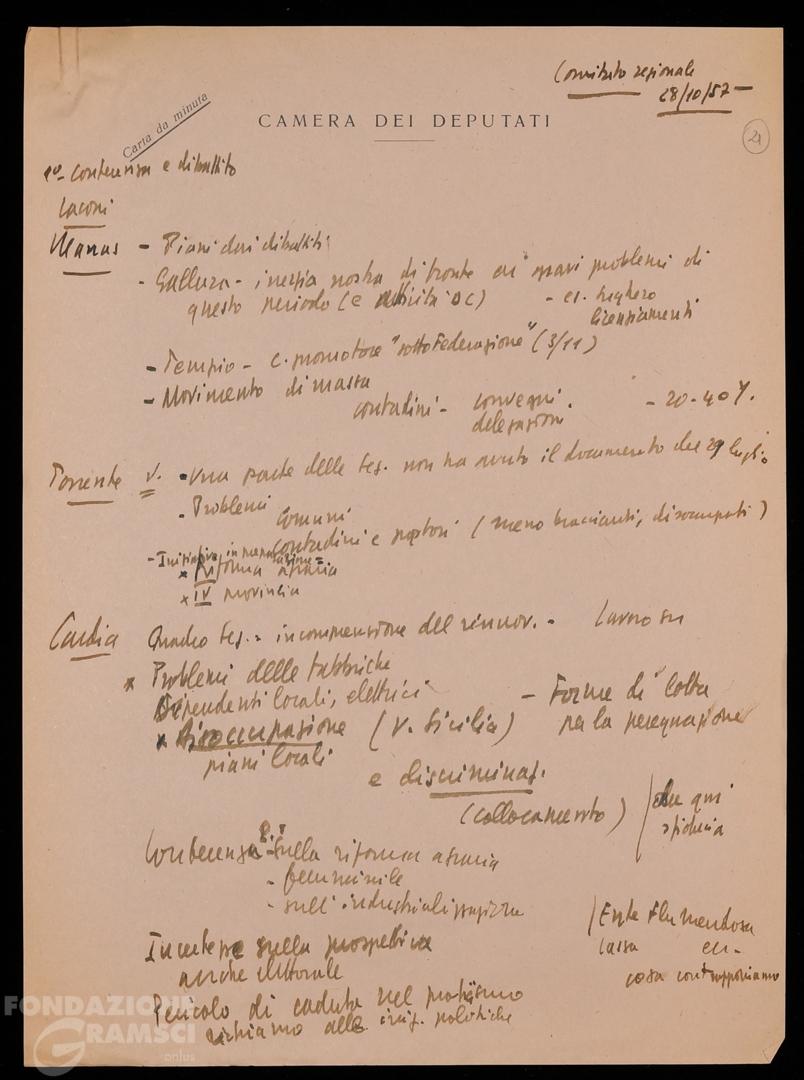 Comitato regionale
28/10/57 -
Carta da minuta
CAMERA DEI DEPUTATI
21
1º - Conferenza e dibattito
Laconi
Manas - Piani dei dibattiti
- Gallura - inerzia nostra di fronte ai gravi problemi di
questo periodo (e attività DC) - es. sughero
licenziamenti
- Tempio - C. promotore "sottofederazione" (3/11)
- Movimento di massa
contadini - convegni. - 20-40%.
delegazioni
Torrente V. - Una parte delle fed. non ha avuto il documento del 29 luglio
- Problemi
comuni
contadini e pastori (meno braccianti, disoccupati)
- Iniziative in preparazione =
x Riforma agraria
x IV provincia
Cardia Quadro feg. = incomprensione del rinnov. - Lavoro su
x Problemi delle fabbriche
Dipendenti locali, elettrici - Forme di lotta
x Disoccupazione (V. Sicilia) per la perequazione
piani locali
e discriminaz.
(collocamento) che qui
sfiducia
Conferenza sulla riforma agraria
- femminile
- sull'industrializzazione
Incertezze sulla prospettiva Ente Flumendosa
anche elettorale Cassa
cosa contrapponiamo
Pericolo di caduta nel
richiamo alle politiche
FONDAZIONE
GRAMSCI
onlus